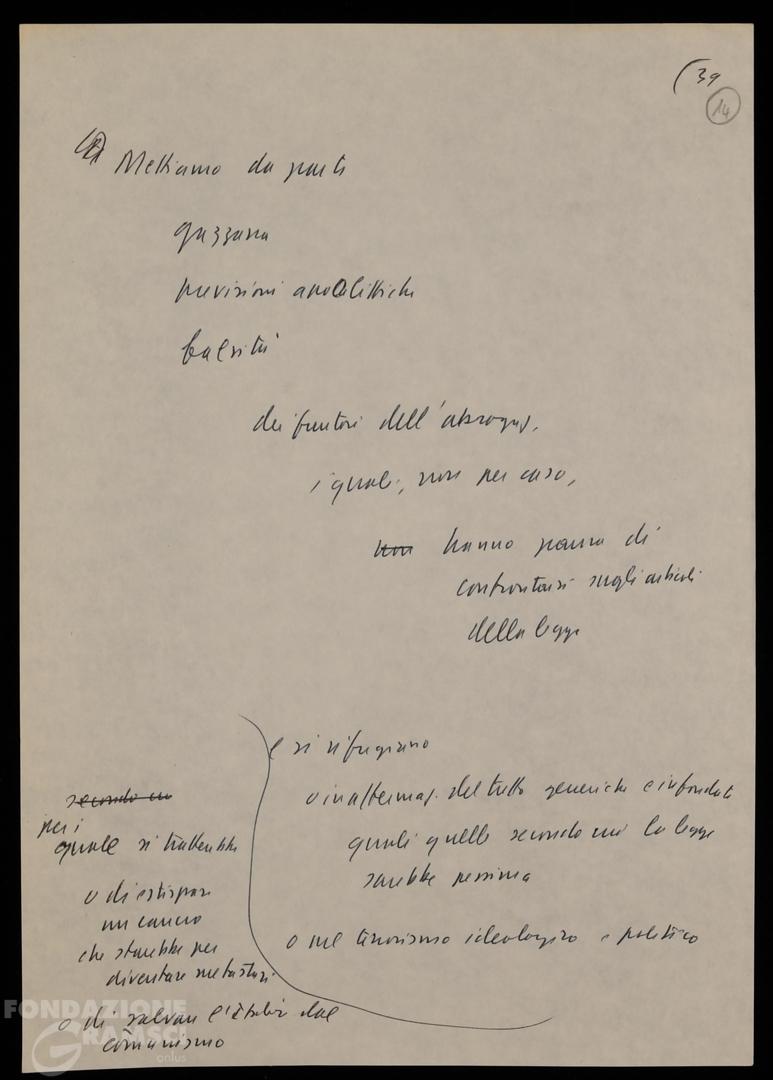 (39
14
Mettiamo da parte
gazzarra
previsioni apocalittiche
falsità
dei fautori dell'abrogaz.
i quali, non per caso,
non hanno paura di
confrontarsi sugli articoli
della legge
e si rifugiano
o in affermaz. del tutto generiche e infondate
quali quelle secondo cui la legge
sarebbe pessima
o nel terrorismo ideologico e politico
secondo cu
per i
quale si tratterebbe
o di estirpare
un cancro
che starebbe per
diventare metastasi
o di salvare l'Italia dal
comunismo
FONDAZIONE
GRAMSCI
onlus